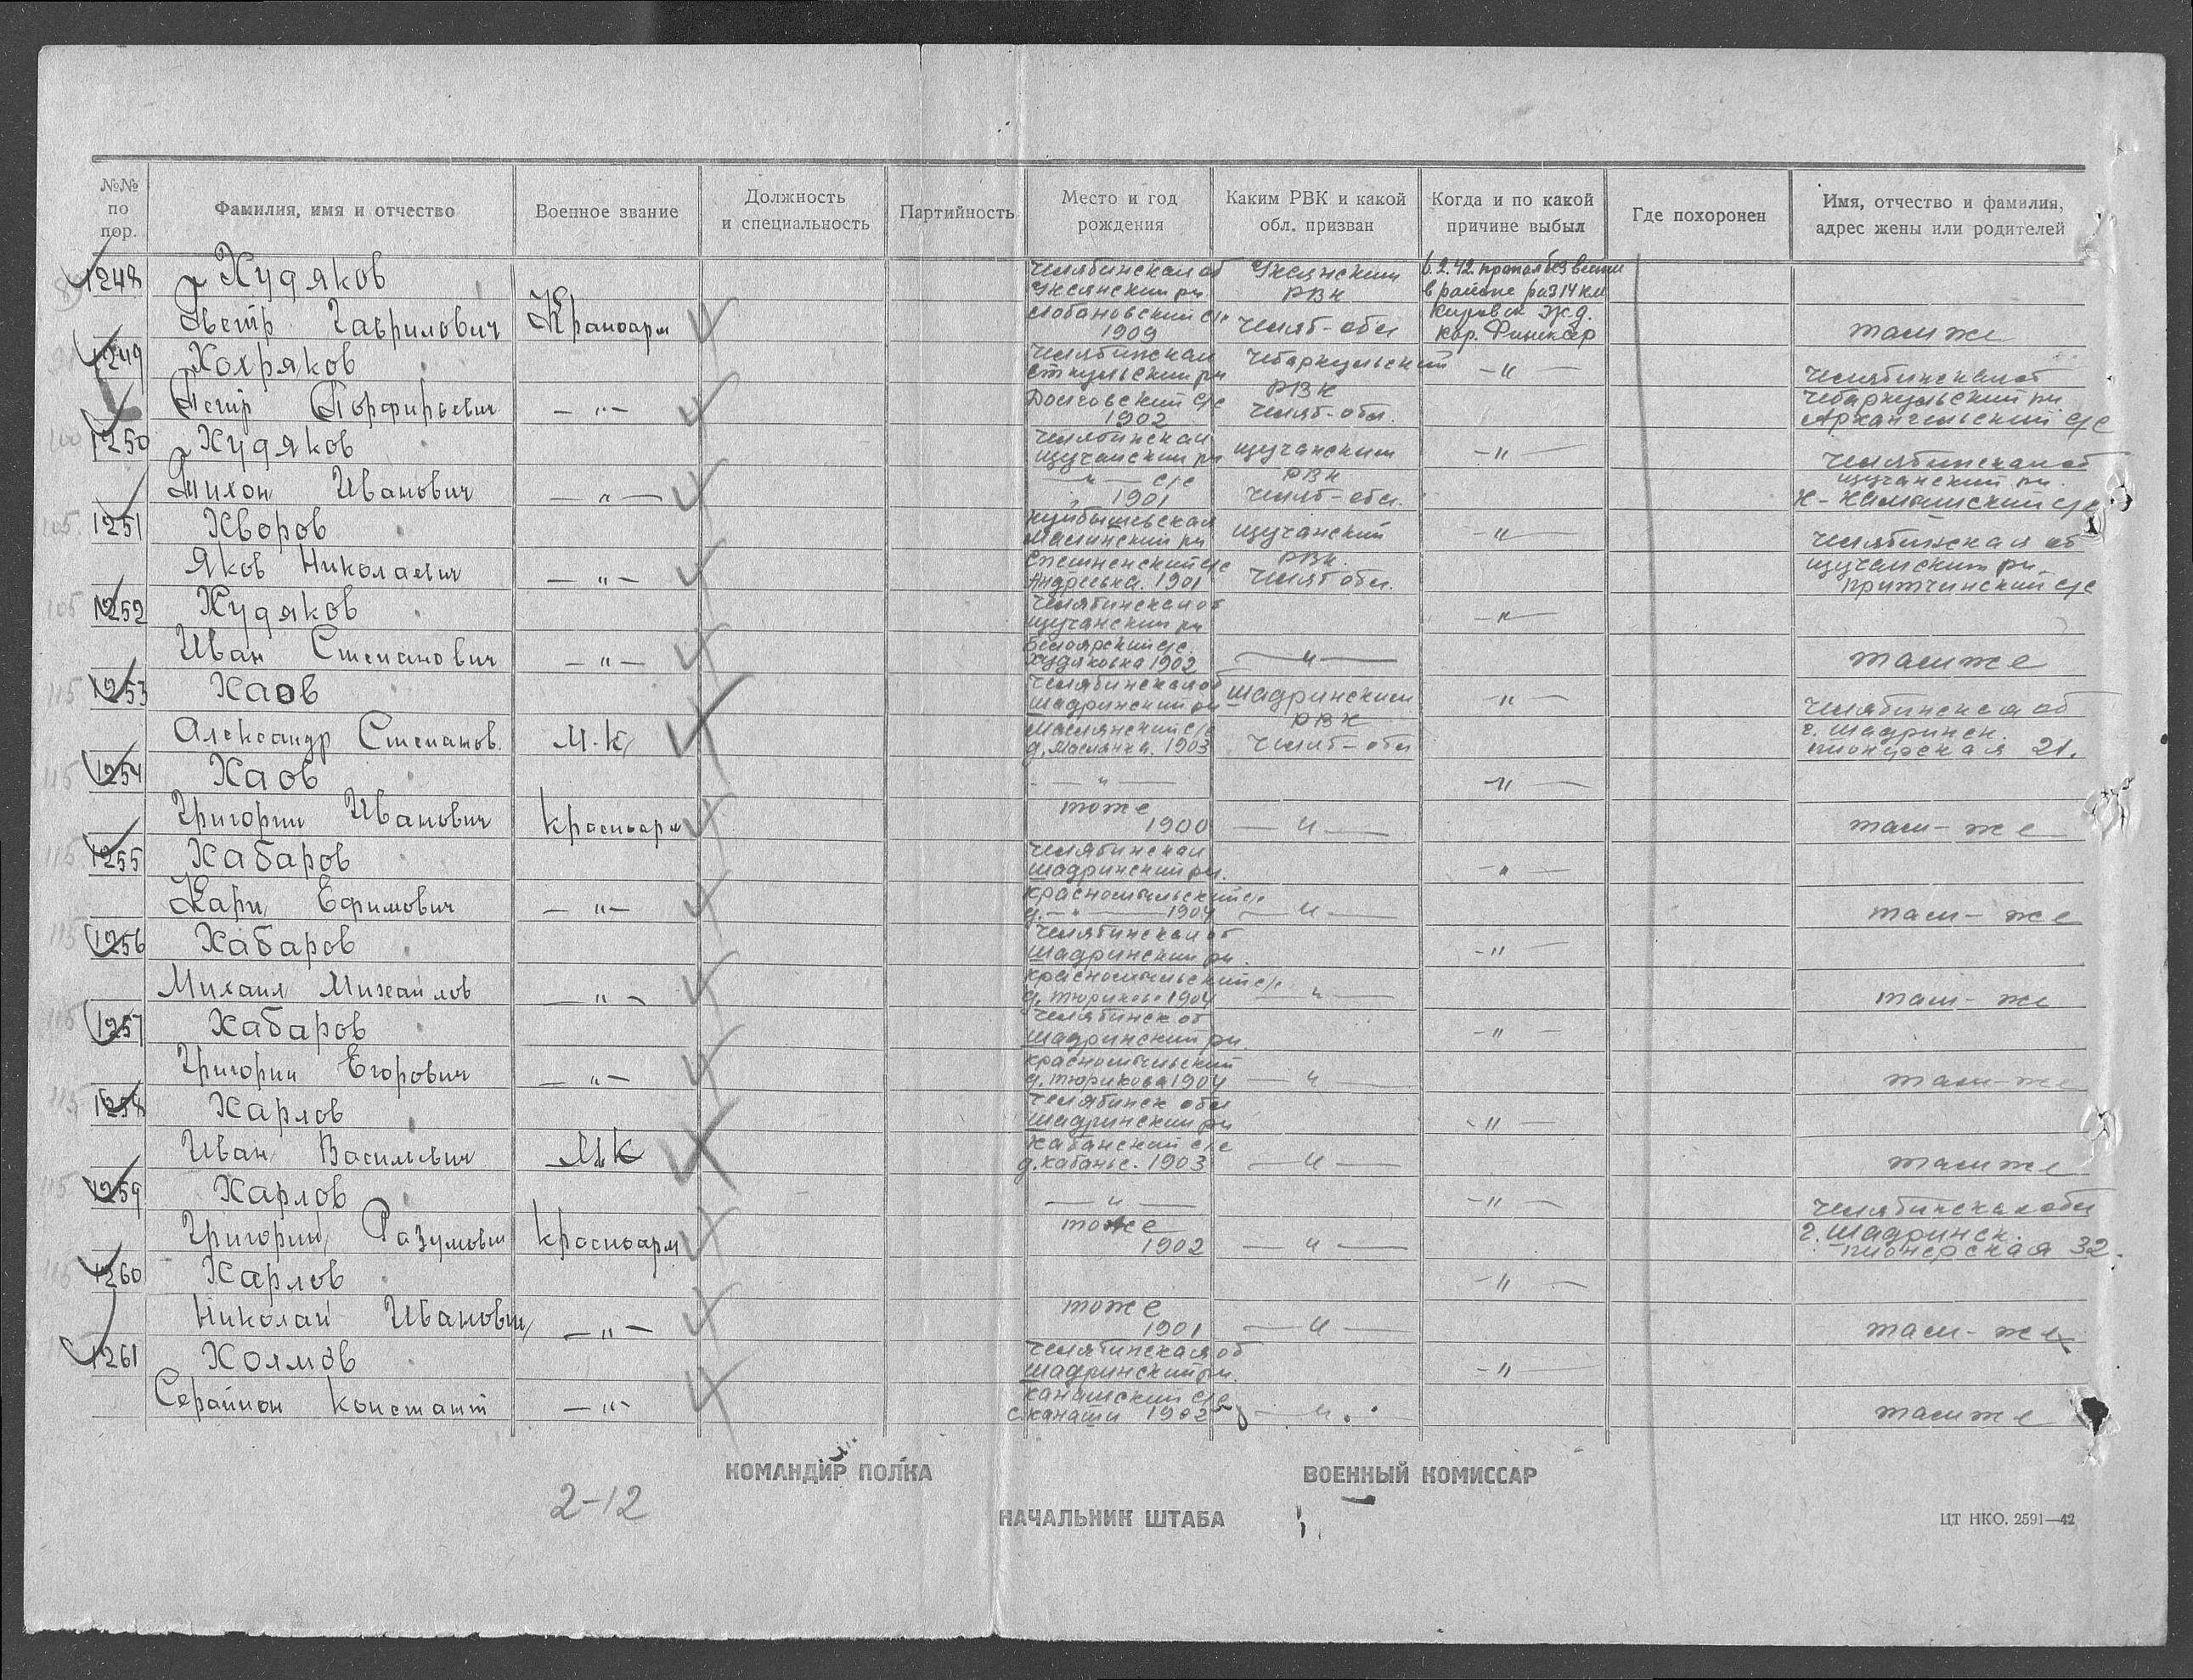 №№ по пор.
Фамилия, имя и отчество
Военное звание
Должность и специальность
Партийность
Место и год рождения
Каким РВК и какой обл. призван
Когда и по какой причине выбыл
Где похоронен
Имя, отчество и фамилия, адрес жены или родителей
1248 Худяков Челябинская об Уксянский РВК 6.2.42 пропал без вести
Уксянский рн в районе раз 14 км
Петр Гаврилович Лобановский с/с Челяб-обл Кировск ж.д.
1909 там же
1249 Хохряков Челябинская Чебаркульский -"-
Челябинская об
Петр Порфирьевич -"- Долговский с/с РВК Чебаркульский рн
1902 Челяб-обл. Архангельский с/с
1250 Худяков Челябинская щучанский -"-
щучанский рн РВК Челябинская об
Тихон Иванович -"- -"- с/с щучанский рн.
1901 Челяб-обл. с/с
1251 Хворов Куйбышевская щучанский -"-
РВК Челябинская об
Яков Николаевич -"- щучанский рн
Андреевка. 1901 Челяб обл. с/с
1252 Худяков Челябинская об -"-
щучанский рн
Иван Степанович -"- Белоярский с/с.
Худяковка 1902 -"- там же
1253 Хаов Челябинская об шадринский -"-
шадринский рн РВК Челябинская об
Александр Степанов. М.К. Маслянский с/с г. шадринск.
д. Маслянка. 1903 Челяб-обл пионерская 21.
1254 Хаов -"- -"-
Григорий Иванович красноарм тоже
1900 -"- там-же
1255 Хабаров Челябинская -"-
шадринский рн.
Ефимович -"- красномыльский с/с
д. -"- 1904 -"- там-же
1256 Хабаров Челябинская об -"-
шадринский рн.
Михаил Михайлов -"- красномыльский с/с
д. тюриково 1904 -"- там-же
1257 Хабаров Челябинск об -"-
шадринский рн.
Григорий Егорович -"- красномыльский
д. тюрикова 1904 -"- там-же
1258 Харлов Челябинск обл -"-
шадринский рн
Иван Васильевич МК кабанский с/с
1903 -"- там же
1259 Харлов -"- -"- Челябинская обл
Григорий красноарм тоже г. шадринск.
1902 -"- пионерская 32.
1260 Харлов -"-
Николай Иванович -"- тоже
1901 -"- там-же
1261 Холмов Челябинская об -"-
шадринский рн.
-"- канашский с/с
с. канаши 1902 -"- там же
КОМАНДИР ПОЛКА
ВОЕННЫЙ КОМИССАР
2-12
НАЧАЛЬНИК ШТАБА
ЦТ НКО. 2591—42